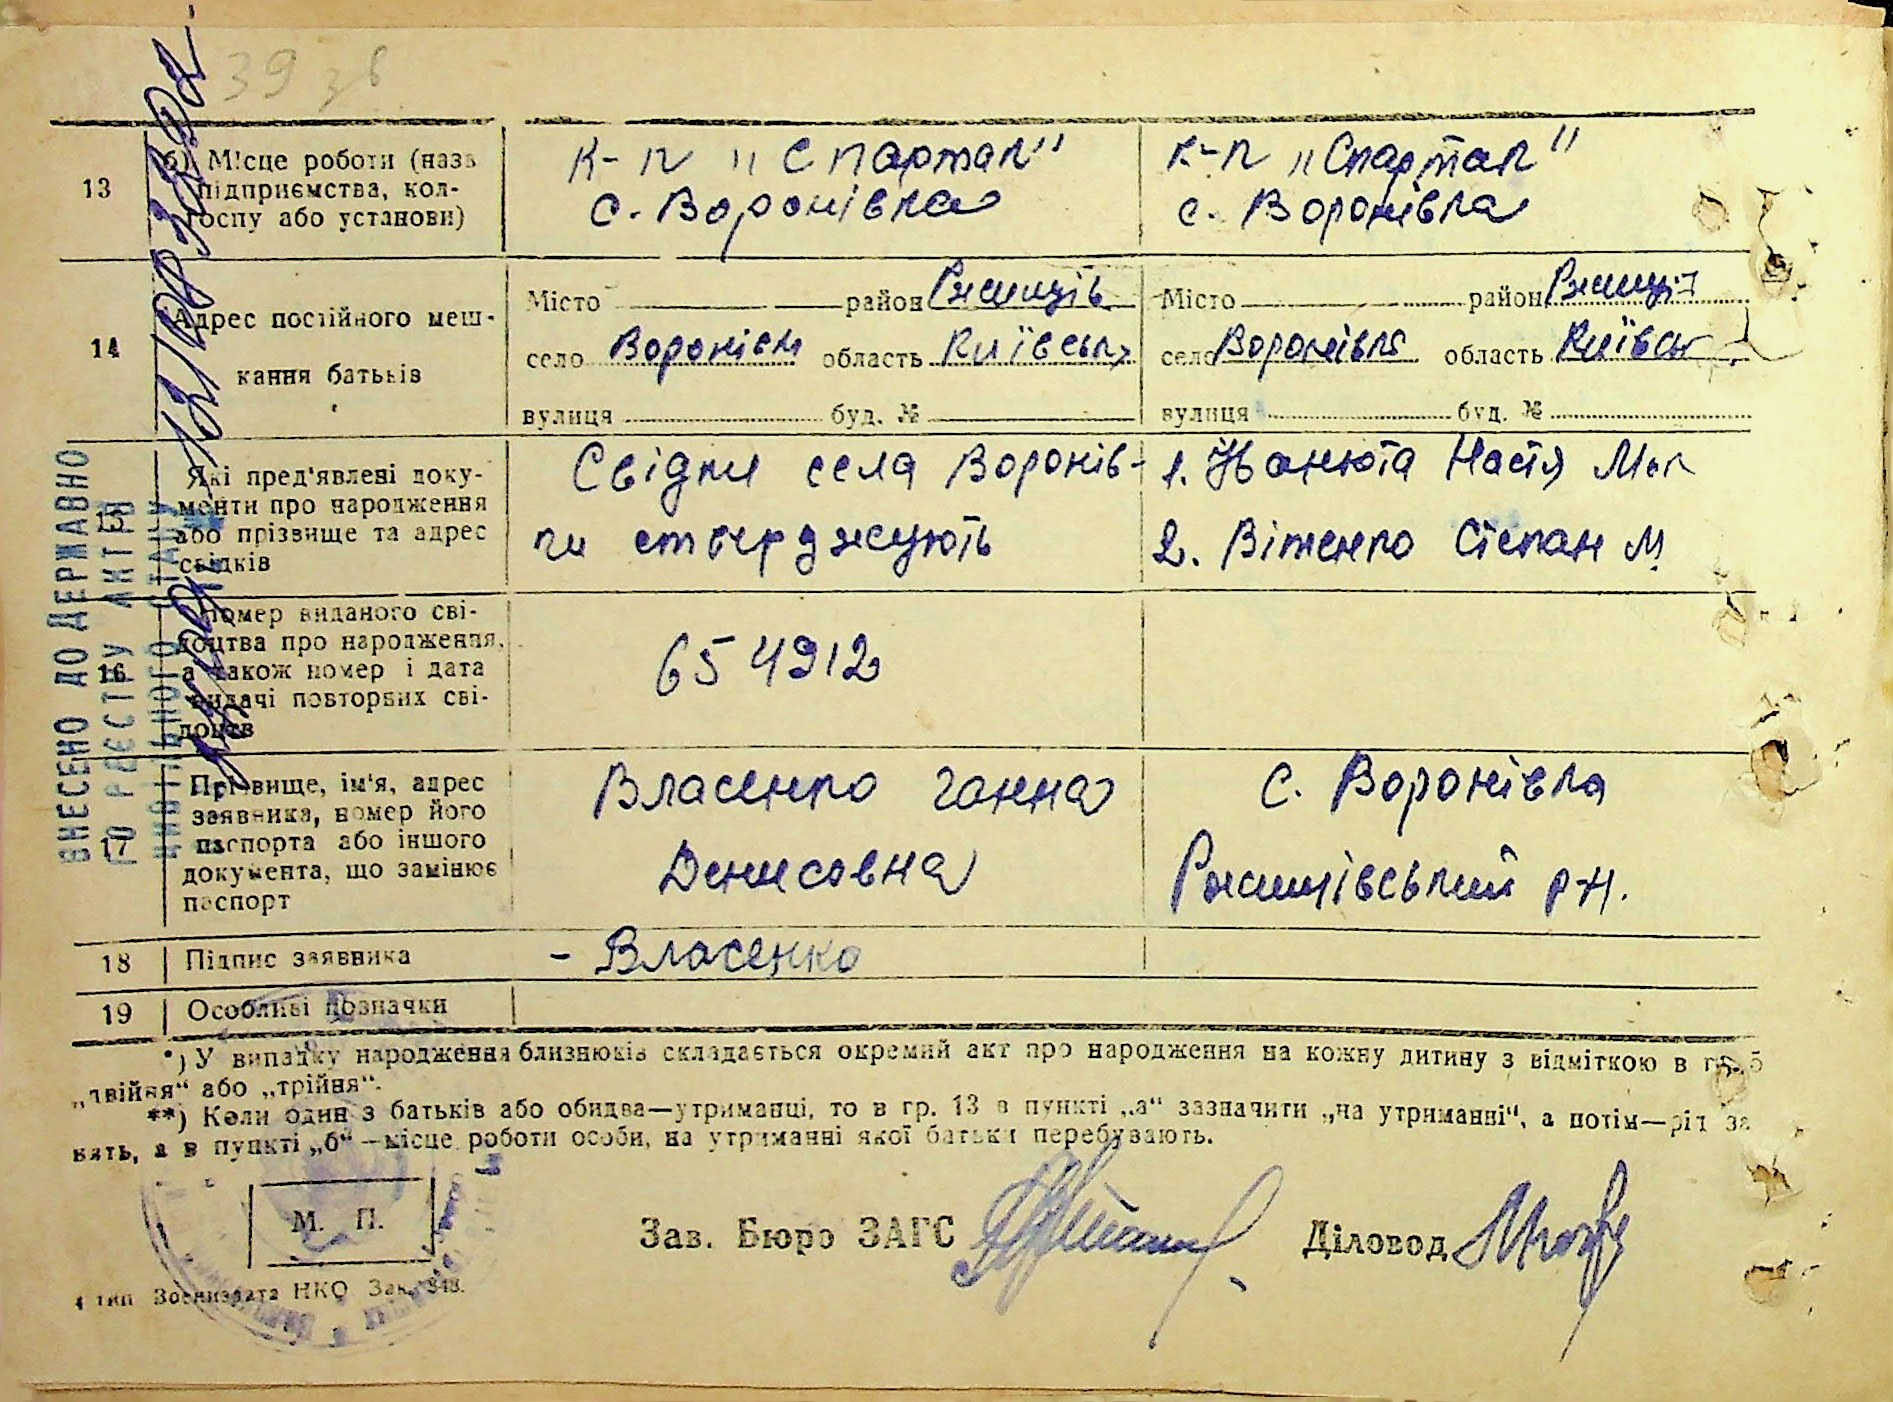 39 зв
13
б) Місце роботи (назв
підприємства, кол-
госпу або установи)
к-п „Спартак"
с. Воронівка
к-п „Спартак"
с. Воронівка
14
Адрес постійного меш-
кання батьків
Місто район Ржищів
село Воронівк область Київськ
вулиця буд. №
Місто район Ржищів
село Воронівка область Київськ
вулиця буд. №
15
Які пред'явлені доку-
менти про народження
або прізвище та адрес
свідків
Свідки села Воронів-
ки стверджують
1. Іванюта Настя
2. Вітенко Степан М
16
Номер виданого сві-
доцтва про народження,
а також номер і дата
видачі повторних сві-
доцтв
654912
17
Прізвище, ім'я, адрес
заявника, номер його
паспорта або іншого
документа, що замінює
паспорт
Власенко Ганна
Денисовна
с. Воронівка
Ржищівський р-н.
18
Підпис заявника
- Власенко
19
Особливі позначки
*) У випадку народження близнюків складається окремий акт про народження на кожну дитину з відміткою в гр. 5
„двійня" або „трійня".
**) Коли один з батьків або обидва—утриманці, то в гр. 13 в пункті „а" зазначити „на утриманні", а потім—рід за
нять, а в пункті „б"—місце роботи особи, на утриманні якої батьки перебувають.
М. П.
Зав. Бюро ЗАГС
Діловод
4 тип Воениздата НКО Зак. 348.
ВНЕСЕНО ДО ДЕРЖАВНО
ГО РЕЄСТРУ АКТІВ
ЦИВІЛЬНОГО СТАНУ